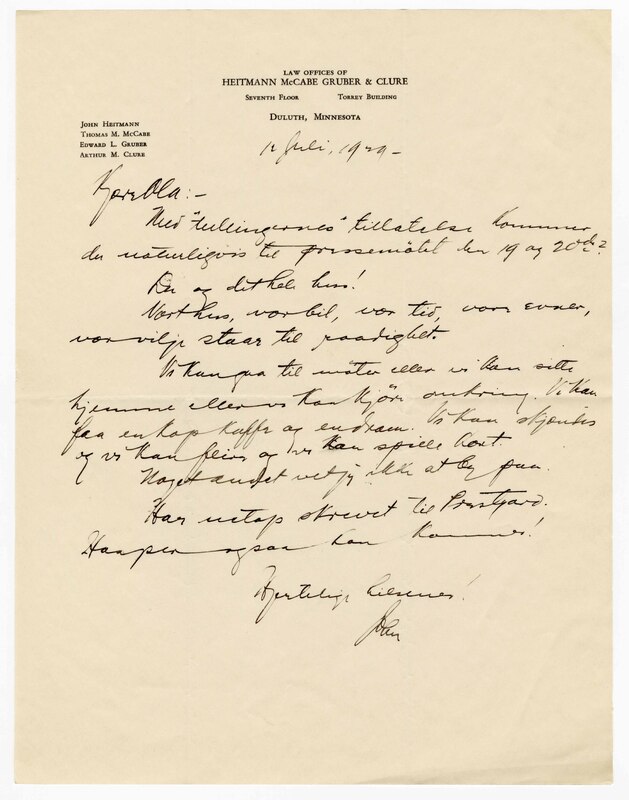 LAW OFFICES OF
HEITMANN McCABE GRUBER & CLURE
SEVENTH FLOOR TORREY BUILDING
DULUTH, MINNESOTA
JOHN HEITMANN
THOMAS M. McCABE
EDWARD L. GRUBER
ARTHUR M. CLURE
12 Juli, 1929 -
Kjære Ola: -
Med "tullingernes" tillatelse kommer
du naturligvis til pressemötet den 19 og 20de?
Du og det hele hus!
Vort hus, vor bil, vor tid, vore evner,
vor vilje staar til raadighet.
Vi kan gaa til möter eller vi kan sitte
hjemme eller vi kan kjöre omkring. Vi kan
faa en kop kaffe og en dram. Vi kan skjendes
og vi kan feire og vi kan spille kort.
Noget andet vet jeg ikke at by paa.
Har netop skrevet til Prestgard.
Haaper ogsaa han kommer!
Hjertelige hilsener!